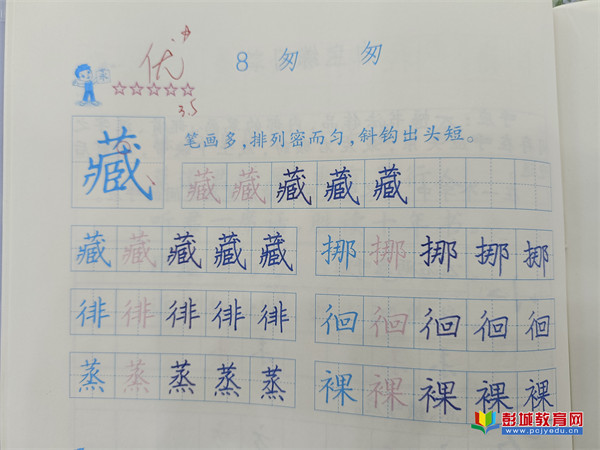 优
8 匆 匆
3.5
藏 笔画多，排列密而匀，斜钩出头短。
藏 藏 藏 藏 藏
藏 藏 藏 藏 藏 挪 挪 挪 挪 挪
徘 徘 徘 徘 徘 徊 徊 徊 徊 徊
蒸 蒸 蒸 蒸 蒸 裸 裸 裸 裸 裸
彭城教育网
www.pcjyedu.cn